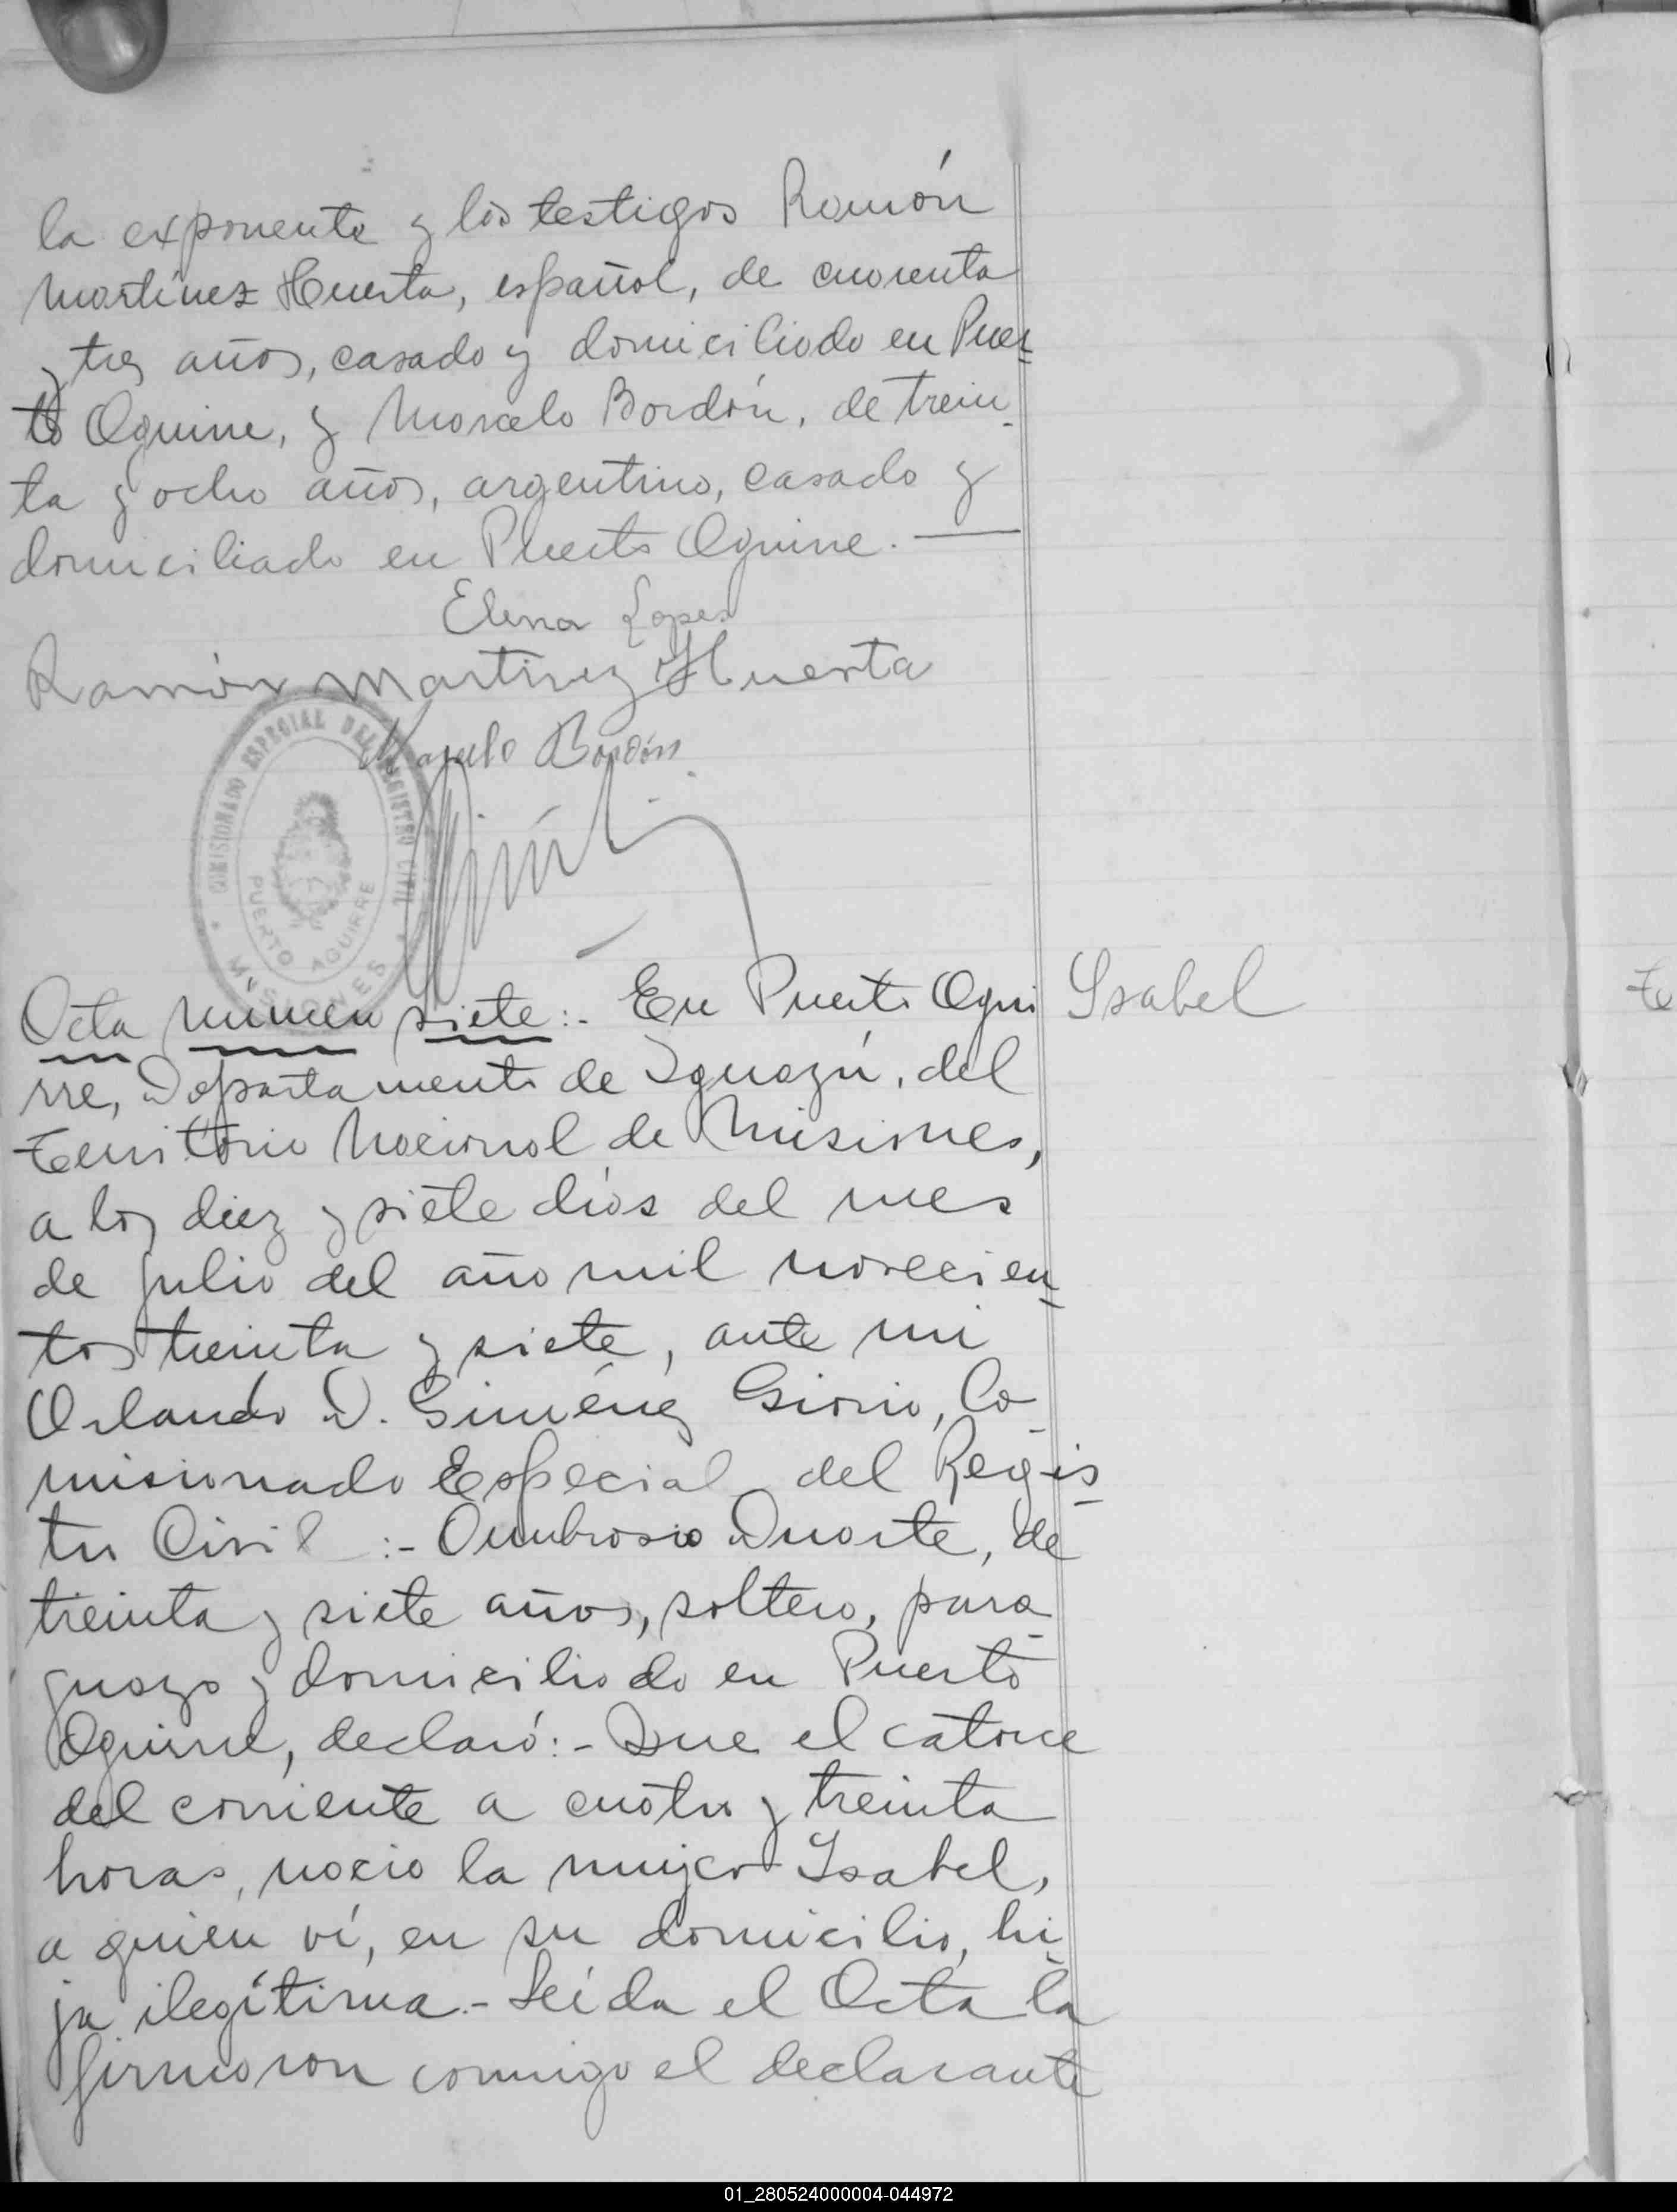 la exponente y los testigos Ramón
Martínez Huerta, español, de cuarenta
y tres años, casado y domiciliado en Puer-
to Aguirre, y Marcelo Bordón, de trein-
ta y ocho años, argentino, casado y
domiciliado en Puerto Aguirre.
Elena Lopes
Ramón Martinez Huerta
Marcelo Bordón
COMISIONADO ESPECIAL DEL REGISTRO CIVIL
PUERTO AGUIRRE
MISIONES
Acta número siete:- En Puerto Agui
Isabel
rre, Departamento de Iguazú, del
territorio Nacional de Misiones,
a los diez y siete días del mes
de julio del año mil novecien-
tos treinta y siete, ante mi
Orlando D. Giménez Giorio, Co-
misionado Especial del Regis-
tro Civil :- Ambrosio Duarte, de
treinta y siete años, soltero, para-
guayo y domiciliado en Puerto
Aguirre, declaró:- Que el catorce
del corriente a cuatro y treinta
horas, nacio la mujer Isabel,
a quien ví, en su domicilio, hi-
ja ilegítima.- Leída el Acta la
firmaron conmigo el declarante
te
01_280524000004-044972